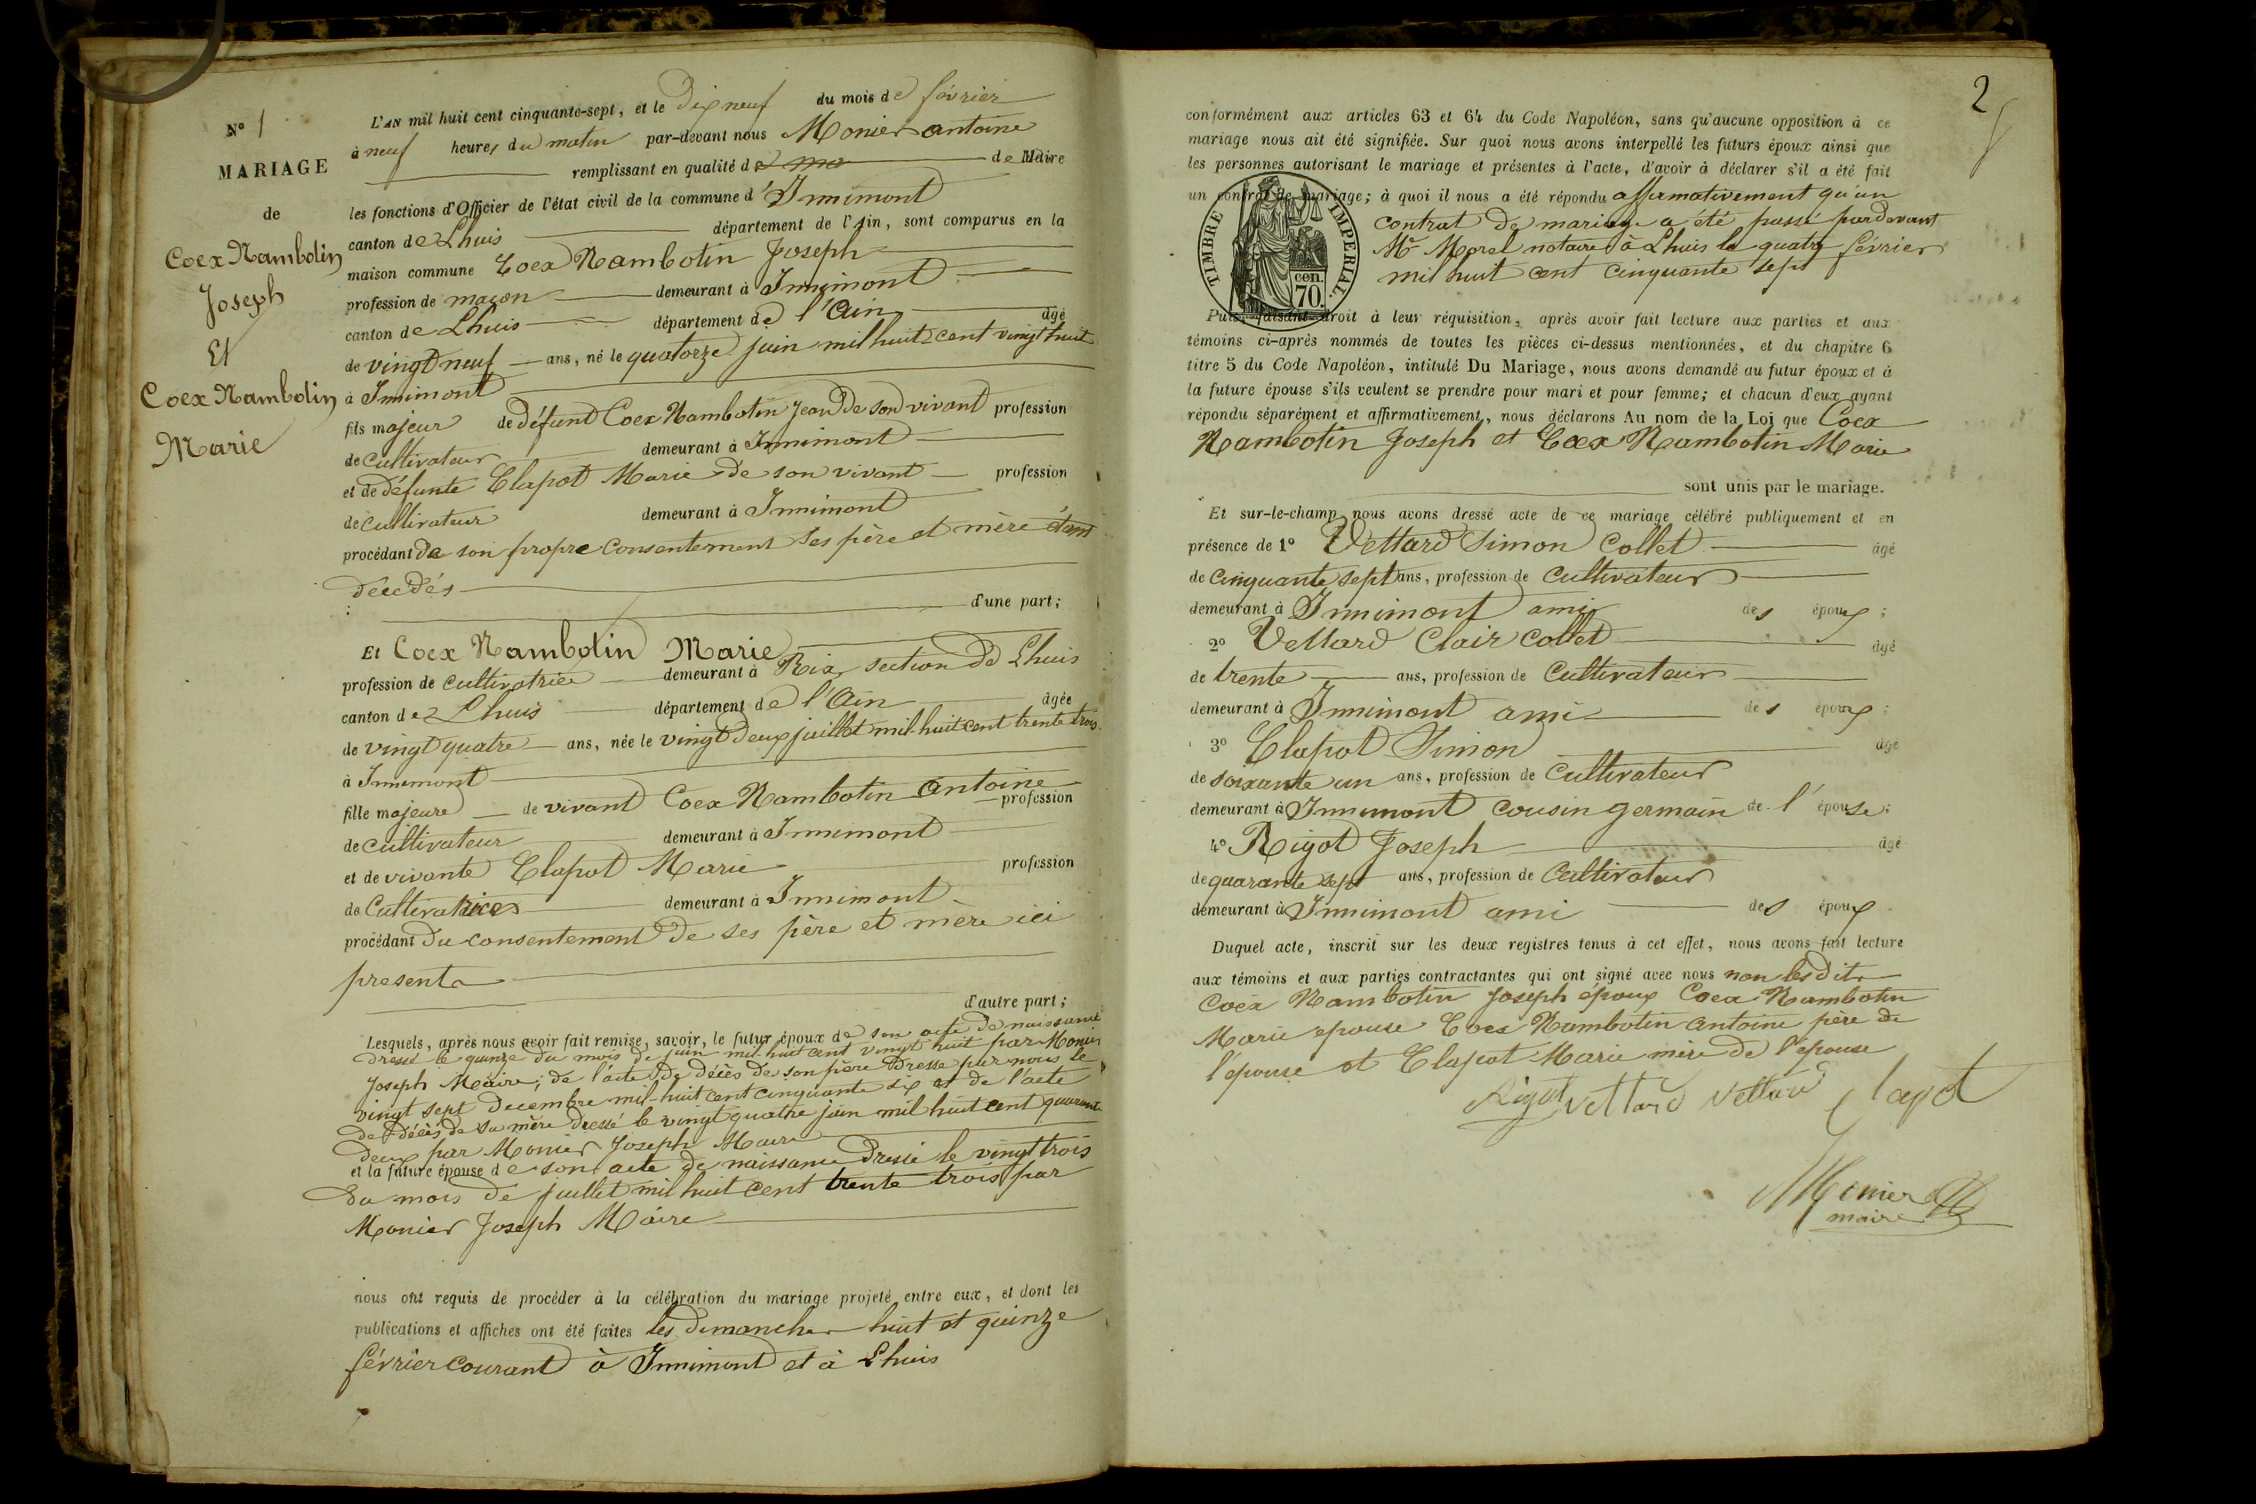 N° 1
MARIAGE
de
Coex Nambotin
Joseph
Et
Coex Nambotin
Marie
L'AN mil huit cent cinquante-sept, et le dix neuf du mois de février
à neuf heures du matin par-devant nous Monier antoine
remplissant en qualité de de Maire
les fonctions d'Officier de l'état civil de la commune d'Innimont
canton de Lhuis département de l'Ain, sont comparus en la
maison commune Coex Nambotin Joseph
profession de maçon demeurant à Innimont
canton de Lhuis département de l'Ain âgé
de vingt neuf ans, né le quatorze juin mil huit cent vingt huit
à Innimont
fils majeur de défunt Coex Nambotin Jean de son vivant profession
de cultivateur demeurant à Innimont
et de défunte Clapot Marie de son vivant profession
de cultivateur demeurant à Innimont
procédant de son propre consentement ses père et mère étant
décédés
d'une part;
Et Coex Nambotin Marie
profession de cultivatrice demeurant à Rix section de Lhuis
canton de Lhuis département de l'Ain âgée
de vingt quatre ans, née le vingt deux juillet mil huit cent trente trois
à Innimont
fille majeure de vivant Coex Nambotin Antoine profession
de cultivateur demeurant à Innimont
et de vivante Clapot Marie profession
de Cultivatrice demeurant à Innimont
procédant du consentement de ses père et mère ici
present
d'autre part;
Lesquels, après nous avoir fait remise, savoir, le futur époux de son acte de naissance
dressé le quinze du mois de juin mil huit cent vingt huit par Monier
Joseph Maire; de l'acte de décès de son père dressé par nous le
vingt sept decembre mil huit cent cinquante six et de l'acte
de décès de sa mère dressé le vingt quatre juin mil huit cent quarante
deux par Monier Joseph Maire
et la future épouse de son acte de naissance dressé le vingt trois
du mois de juillet mil huit cent trente trois par
Monier Joseph Maire
nous ont requis de procéder à la célébration du mariage projeté entre eux, et dont les
publications et affiches ont été faites les dimanches huit et quinze
février courant à Innimont et à Lhuis
2
conformément aux articles 63 et 64 du Code Napoléon, sans qu'aucune opposition à ce
mariage nous ait été signifiée. Sur quoi nous avons interpellé les futurs époux ainsi que
les personnes autorisant le mariage et présentes à l'acte, d'avoir à déclarer s'il a été fait
un contrat de mariage; à quoi il nous a été répondu affirmativement qu'un
contrat de mariage a été passé pardevant
Me Morel notaire à Lhuis le quatre février
mil huit cent cinquante sept
TIMBRE IMPERIAL.
cen.
70.
Puis, faisant droit à leur réquisition, après avoir fait lecture aux parties et aux
témoins ci-après nommés de toutes les pièces ci-dessus mentionnées, et du chapitre 6
titre 5 du Code Napoléon, intitulé Du Mariage, nous avons demandé au futur époux et à
la future épouse s'ils veulent se prendre pour mari et pour femme; et chacun d'eux ayant
répondu séparément et affirmativement, nous déclarons Au nom de la Loi que Coex
Nambotin Joseph et Coex Nambotin Marie
sont unis par le mariage.
Et sur-le-champ nous avons dressé acte de ce mariage célébré publiquement et en
présence de 1° Vettard Simon Collet âgé
de cinquante sept ans, profession de cultivateur
demeurant à Innimont ami des époux;
2° Vettard Clair Collet âgé
de trente ans, profession de cultivateur
demeurant à Innimont ami des époux;
3° Clapot Simon âgé
de soixante un ans, profession de cultivateur
demeurant à Innimont cousin germain de l'épouse;
4° Rigot Joseph âgé
de quarante sept ans, profession de Cultivateur
demeurant à Innimont ami des époux
Duquel acte, inscrit sur les deux registres tenus à cet effet, nous avons fait lecture
aux témoins et aux parties contractantes qui ont signé avec nous non lesdits
Coex Nambotin Joseph époux Coex Nambotin
Marie epouse Coex Nambotin Antoine père de
l'épouse et Clapot Marie mère de l'epouse
Rigot Vettard Vettard Clapot
Monier
maire